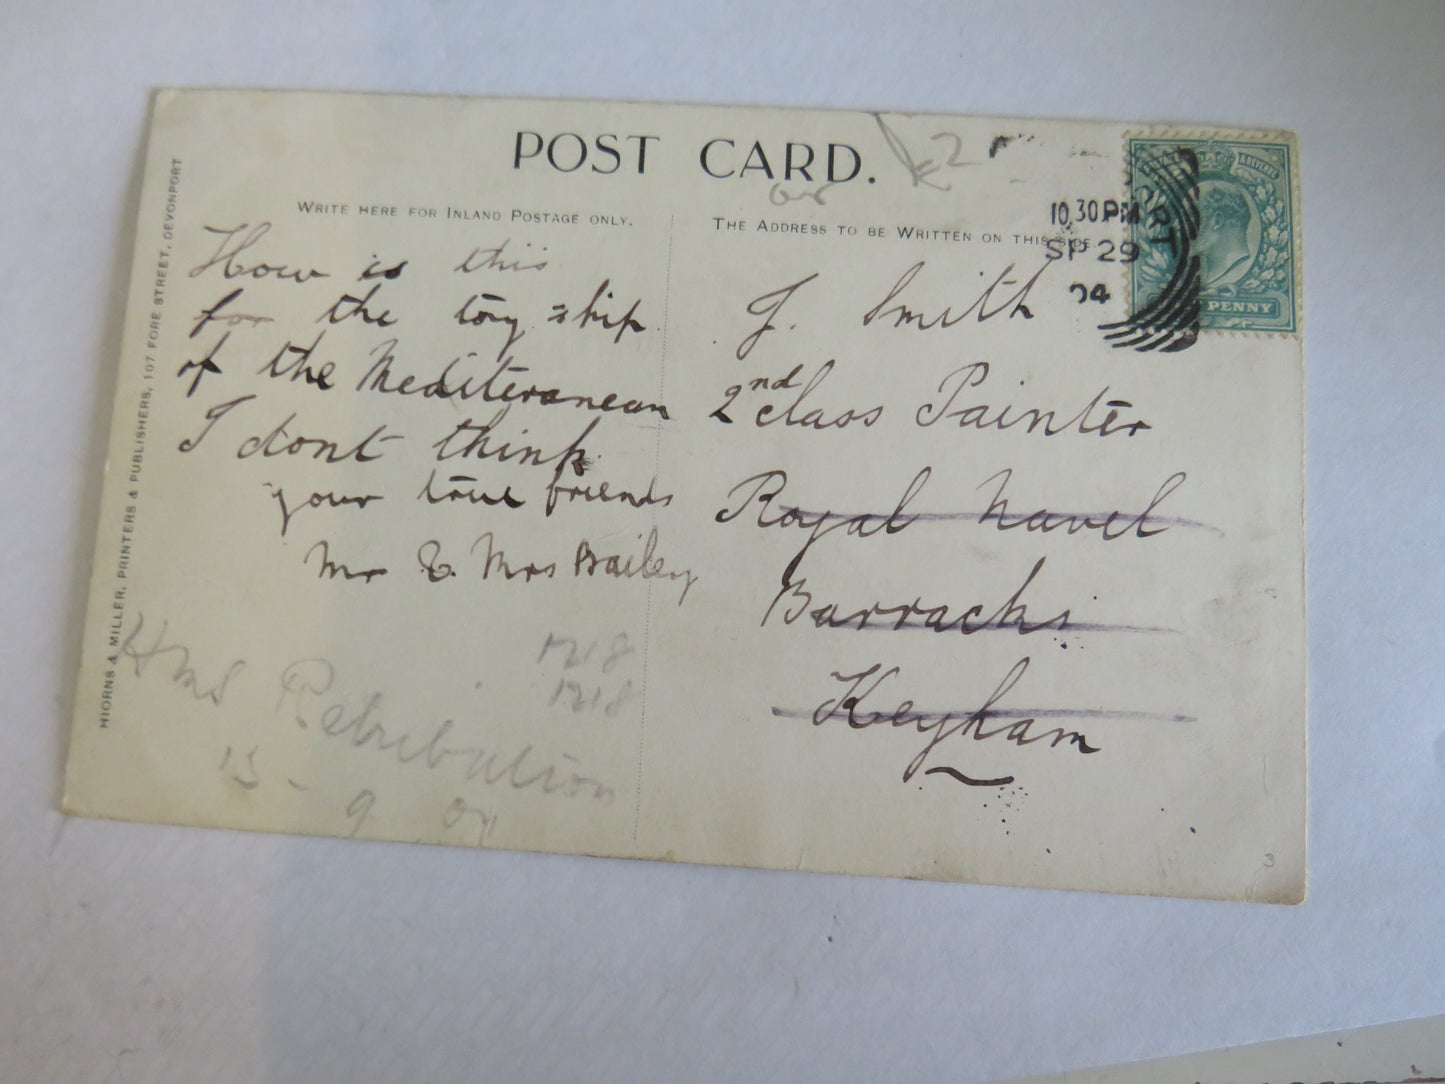 POST CARD.
WRITE HERE FOR INLAND POSTAGE ONLY.
THE ADDRESS TO BE WRITTEN ON THIS SIDE.
HIORNS & MILLER, PRINTERS & PUBLISHERS, 107 FORE STREET, DEVONPORT
How is this
for the tory ship
of the Mediteranean
I dont think
your true friends
Mr & Mrs Bailey
HMS Retribution
1718
1718
15 - 9
10.30PM
SP 29
04
PENNY
J. Smith
2nd class Painter
Royal Navel
Barracks
Keyham
3